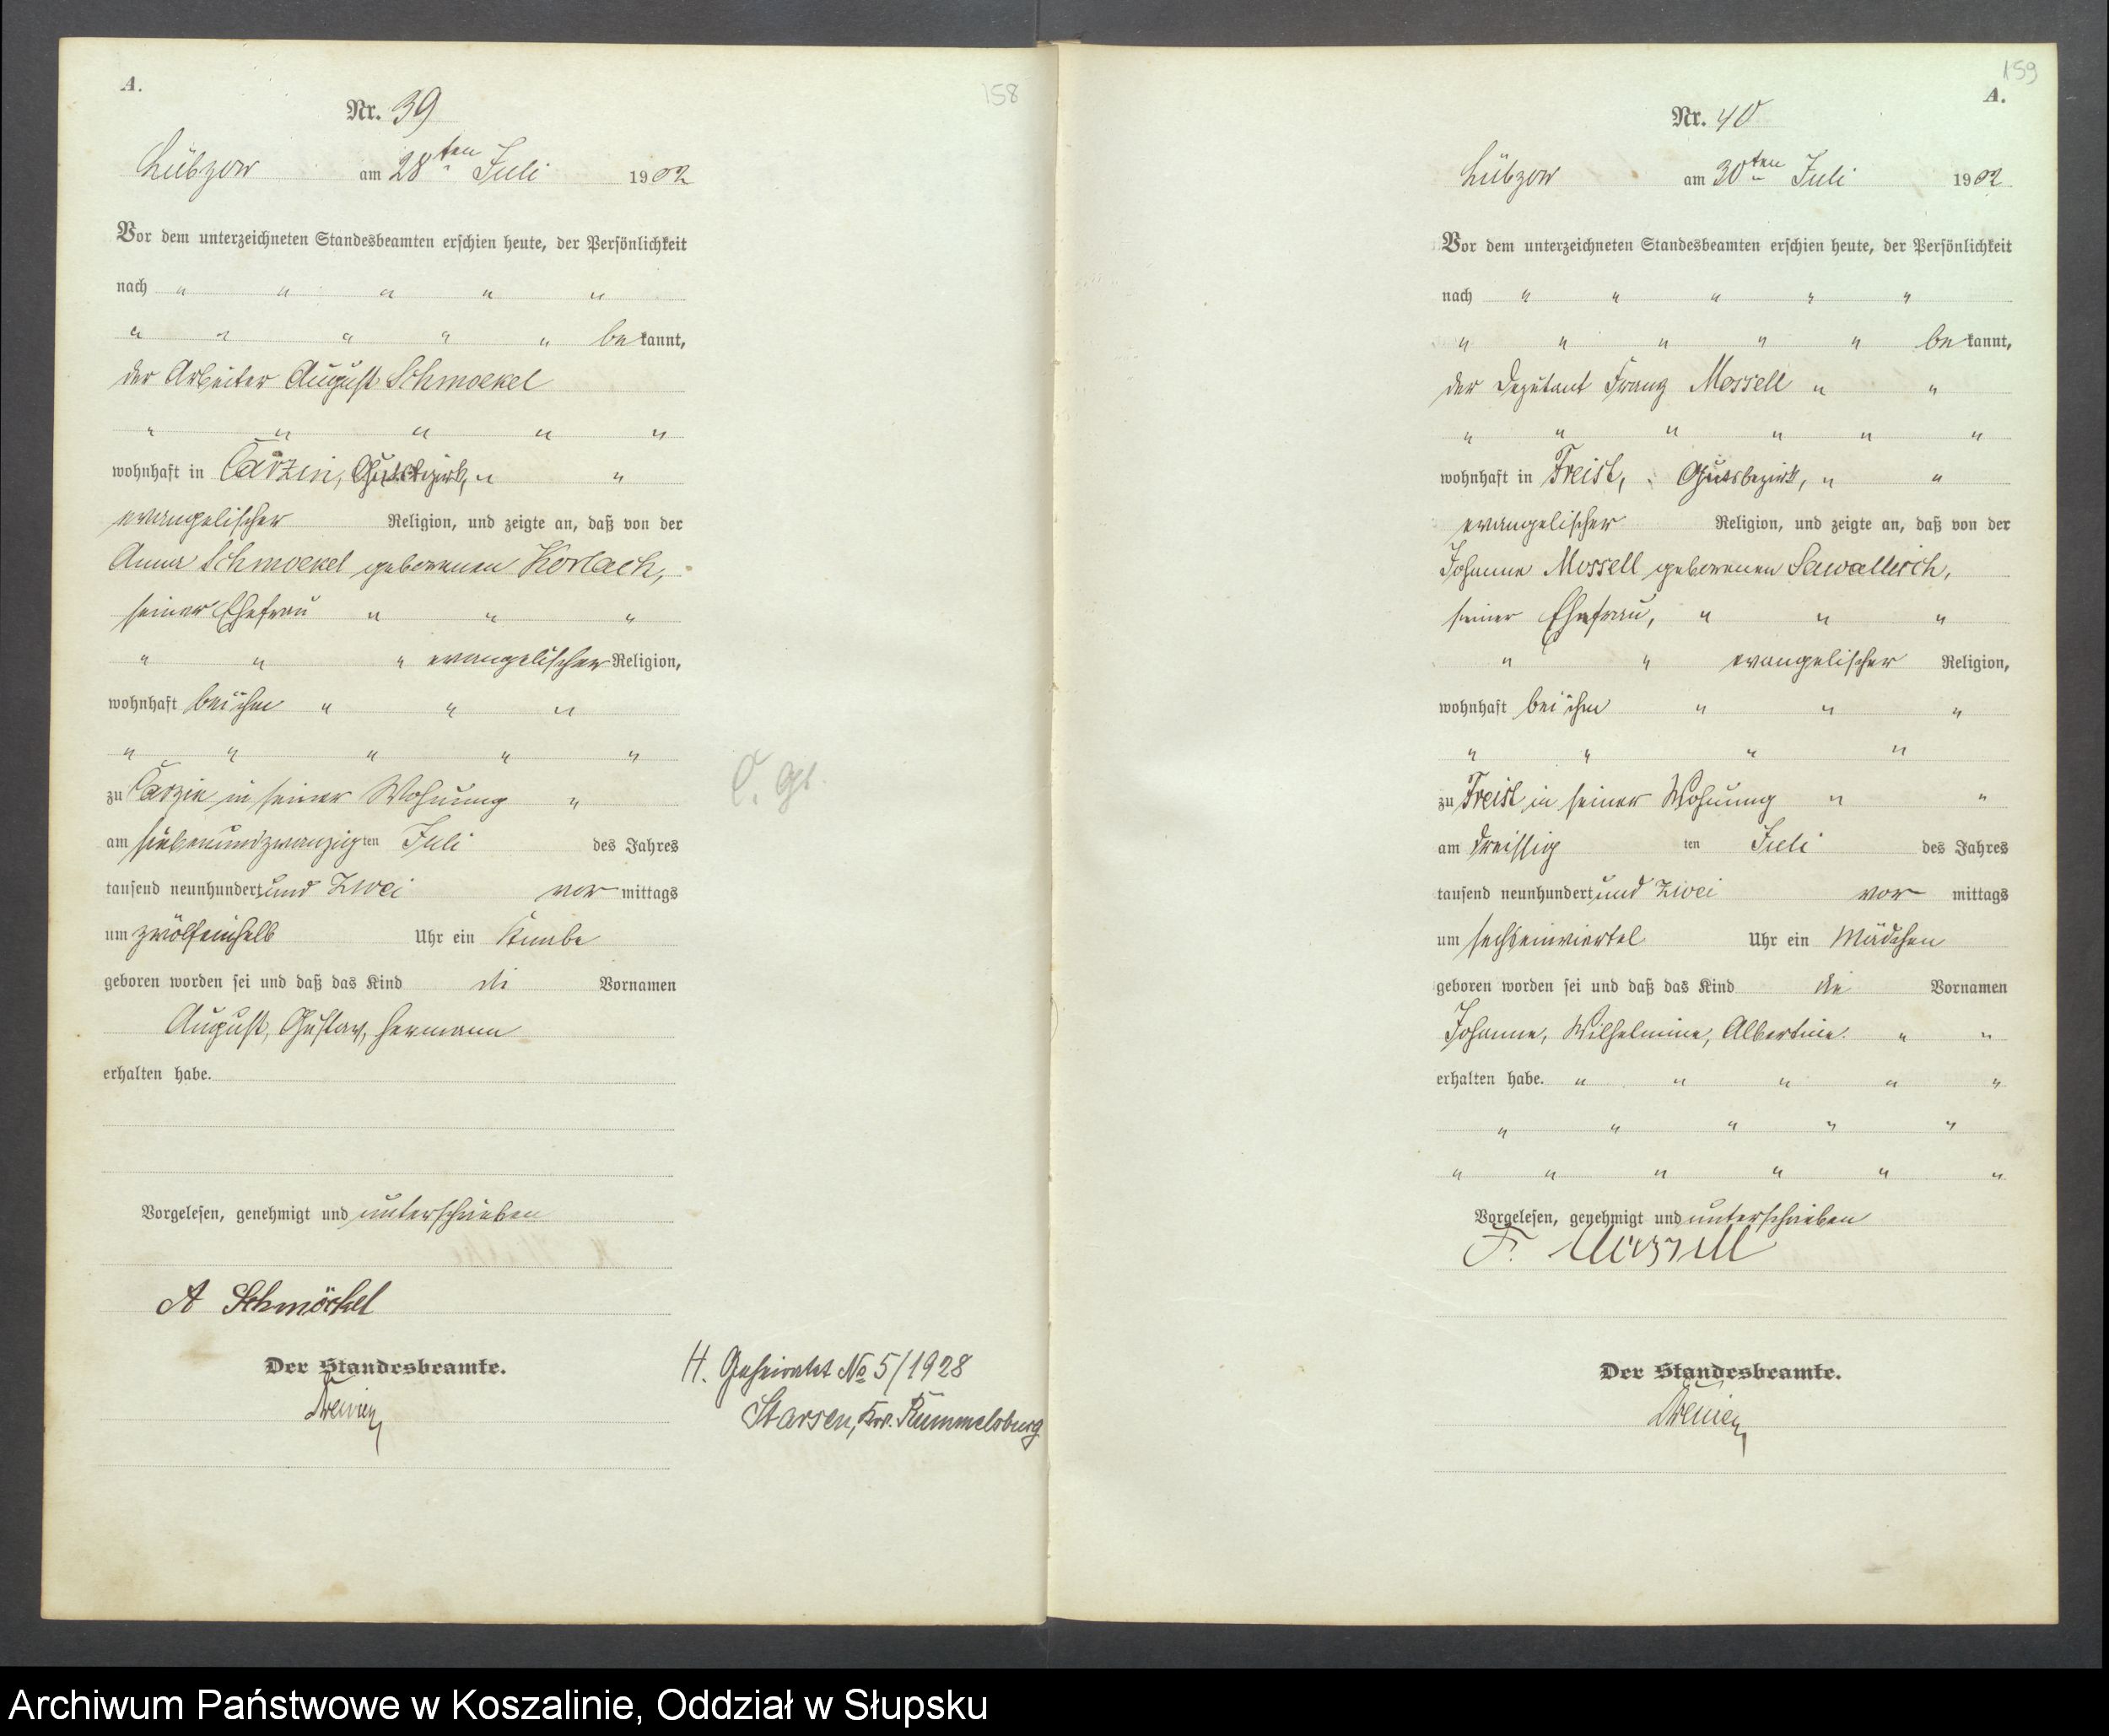 A.
158
Nr. 39
Lübzow am 28ten Juli 1902
Vor dem unterzeichneten Standesbeamten erschien heute, der Persönlichkeit
nach " " " " "
" " " " " be kannt,
der Arbeiter August Schmoekel
" " " " "
wohnhaft in Carzin, Gutsbezirk, " "
evangelischer Religion, und zeigte an, daß von der
Anna Schmoekel geborenen Korlach,
seiner Ehefrau " " "
" " " evangelischer Religion,
wohnhaft bei ihm " " "
" " " " "
zu Carzin in seiner Wohnung "
am siebenundzwanzig ten Juli des Jahres
tausend neunhundert und zwei vor mittags
um zwölfeinhalb Uhr ein Knabe
geboren worden sei und daß das Kind die Vornamen
August, Gustav, Hermann
erhalten habe.
Vorgelesen, genehmigt und unterschrieben
A Schmöckel
Der Standesbeamte.
H. Geheiratet No 5/1928
Starsen, Krs. Rummelsburg
159
A.
Nr. 40
Lübzow am 30ten Juli 1902
Vor dem unterzeichneten Standesbeamten erschien heute, der Persönlichkeit
nach " " " " "
" " " " " be kannt,
der Deputant Franz Mossell " "
" " " " " "
wohnhaft in Freist, Gutsbezirk, " "
evangelischer Religion, und zeigte an, daß von der
Johanne Mossell geborenen Sawallisch,
seiner Ehefrau, " " "
" " evangelischer Religion,
wohnhaft bei ihm " " "
" " " "
zu Freist in seiner Wohnung " "
am dreissig ten Juli des Jahres
tausend neunhundert und zwei vor mittags
um sechseinviertel Uhr ein Mädchen
geboren worden sei und daß das Kind die Vornamen
Johanne, Wilhelmine, Albertine. " "
erhalten habe. " " " " "
" " " " "
" " " " " "
Vorgelesen, genehmigt und unterschrieben
F. Mossell
Der Standesbeamte.
Archiwum Państwowe w Koszalinie, Oddział w Słupsku